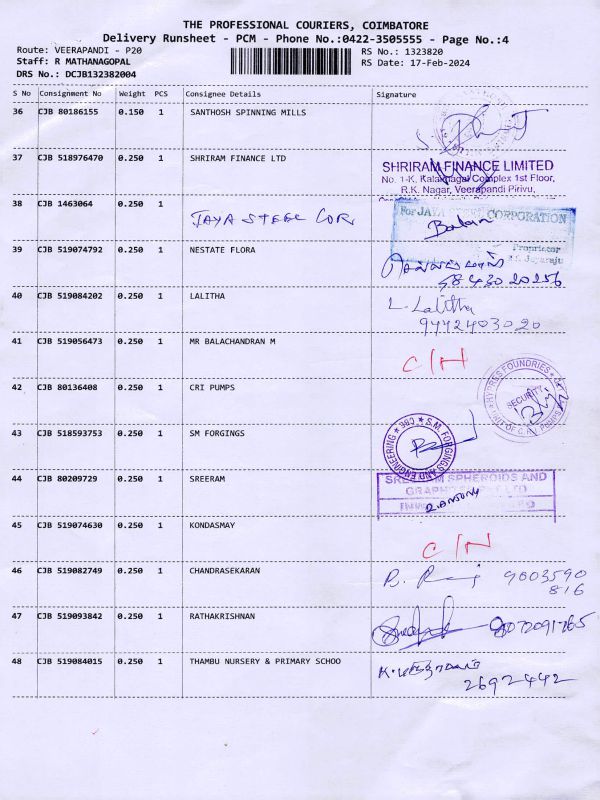 THE PROFESSIONAL COURIERS, COIMBATORE
Delivery Runsheet - PCM - Phone No.:0422-3505555 - Page No.:4
Route: VEERAPANDI - P20
RS No.: 1323820
Staff: R MATHANAGOPAL
RS Date: 17-Feb-2024
DRS No.: DCJB132382004
S No Consignment No Weight PCS Consignee Details Signature
36 CJB 80186155 0.150 1 SANTHOSH SPINNING MILLS
37 CJB 518976470 0.250 1 SHRIRAM FINANCE LTD
SHRIRAM FINANCE LIMITED
No. 1-K, Kalaimagal Complex 1st Floor,
R.K. Nagar, Veerapandi Pirivu,
38 CJB 1463064 0.250 1 JAYA STEEL COR
For JAYA STEEL CORPORATION
Proprietor
39 CJB 519074792 0.250 1 NESTATE FLORA
40 CJB 519084202 0.250 1 LALITHA
L. Lalitha
9442403020
41 CJB 519056473 0.250 1 MR BALACHANDRAN M
C/H
42 CJB 80136408 0.250 1 CRI PUMPS
SECURITY
43 CJB 518593753 0.250 1 SM FORGINGS
CBE * S.M. FORGINGS AND ENGINEERING *
44 CJB 80209729 0.250 1 SREERAM
SPHEROIDS AND
45 CJB 519074630 0.250 1 KONDASMAY
C/H
46 CJB 519082749 0.250 1 CHANDRASEKARAN
9003590
816
47 CJB 519093842 0.250 1 RATHAKRISHNAN
48 CJB 519084015 0.250 1 THAMBU NURSERY & PRIMARY SCHOO
2692442